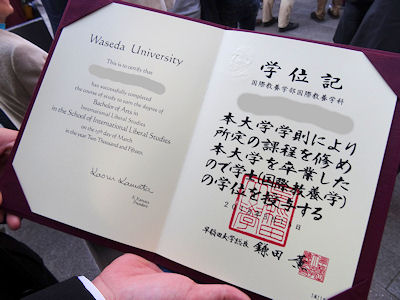 Waseda University
This is to certify that
has successfully completed
the course of study to earn the degree of
Bachelor of Arts in
International Liberal Studies
in the School of International Liberal Studies
on the 15th day of March
in the year Two Thousand and Fifteen.
Kaoru Kamata
K. Kamata
President
学位記
国際教養学部国際教養学科
本大学学則により
所定の課程を修め
本大学を卒業した
ので学士(国際教養学)
の学位を授与する
早稲田大学総長 鎌田 薫